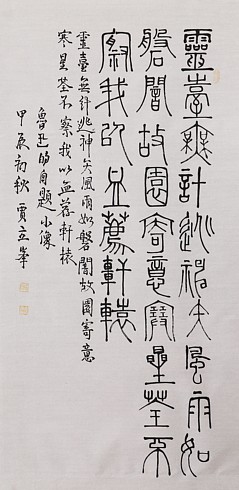 靈臺無計逃神矢風雨如
磐闇故園寄意寒星荃不
察我以血薦軒轅
靈臺無計逃神矢風雨如磐闇故園寄意
寒星荃不察我以血荐軒轅
魯迅的自題小像
甲辰初秋 賈立峯